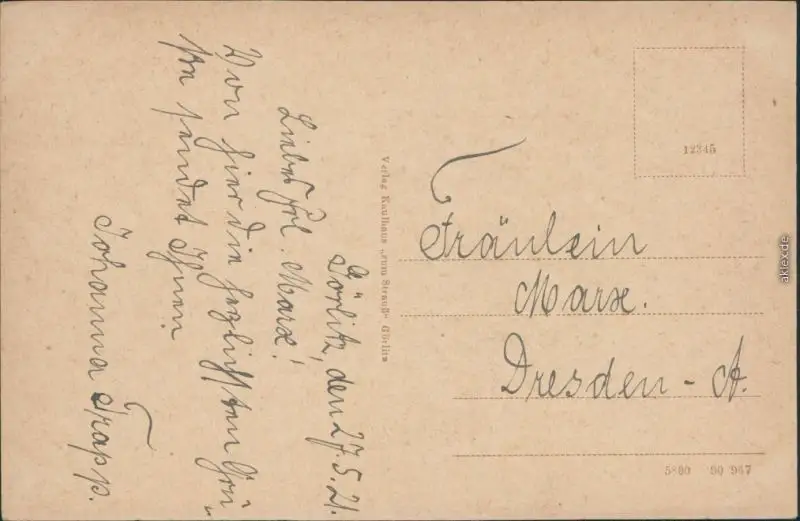 Görlitz, den 27.5.21.
Liebes Frl. Marx!
Von hier die herzlichsten Grü„
ße sendet Ihnen
Johanna Trapp.
Verlag Kaufhaus „zum Strauß“ Görlitz
12345
Fräulein
Marx.
Dresden - A.
5880 30 967
akiex.de